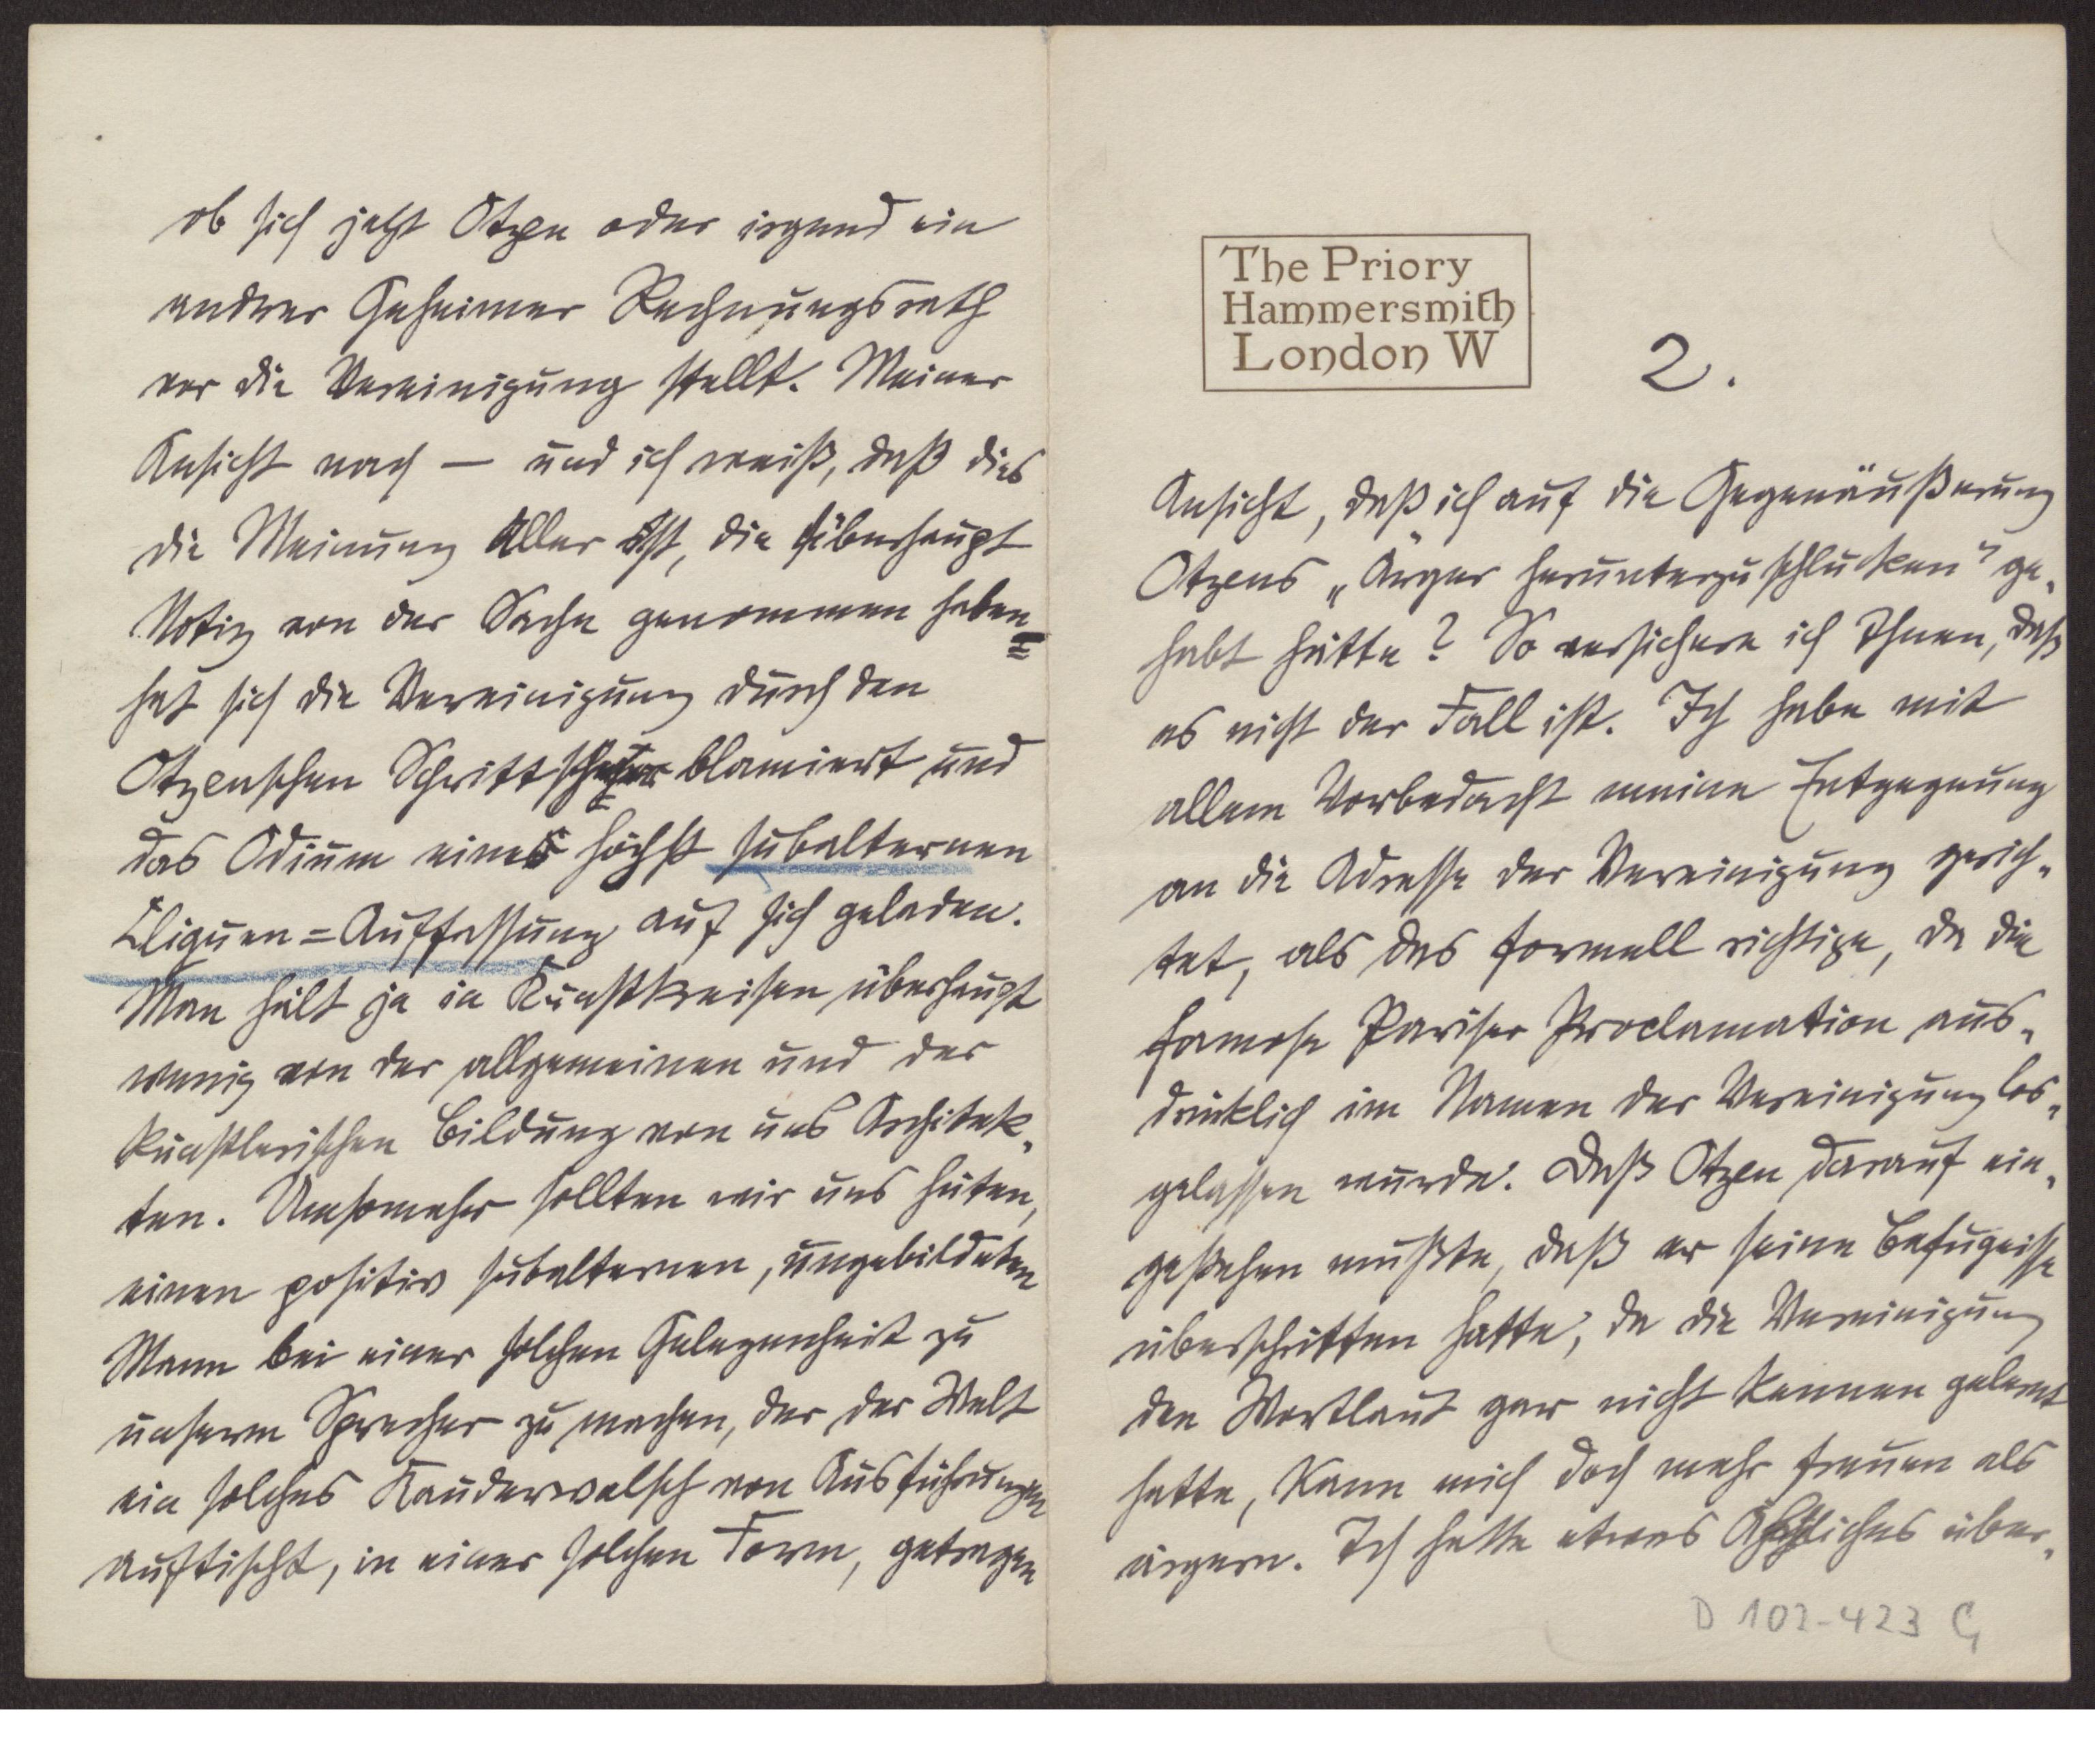 ob sich jetzt Otzen oder irgend ein
andrer Geheimer Rechnungsrath
vor die Vereinigung stellt. Meiner
Ansicht nach — und ich weiß, daß dies
die Meinung Aller ist, die überhaupt
Notiz von der Sache genommen haben =
hat sich die Vereinigung durch den
Otzenschen Schritt schwer blamiert und
das Odium einer höchst subalternen
Cliquen=Auffassung auf sich geladen.
Man hält ja in Kunstkreisen überhaupt
wenig von der allgemeinen und der
künstlerischen Bildung von uns Architek-
ten. Umsomehr sollten wir uns hüten,
einen positiv subalternen, ungebildeten
Mann bei einer solchen Gelegenheit zu
unserm Sprecher zu machen, der der Welt
ein solches Kauderwelsch von Ausführungen
auftischt, in einer solchen Form, getragen
The Priory
Hammersmith
London W
2.
Ansicht, daß ich auf die Gegenäußerung
Otzens „Ärger herunterzuschlucken" ge-
habt hätte? So versichere ich Ihnen, daß
es nicht der Fall ist. Ich habe mit
allem Vorbedacht meine Entgegnung
an die Adresse der Vereinigung gerich-
tet, als das formell richtige, da die
famose Pariser Proclamation aus-
drücklich im Namen der Vereinigung los-
gelassen wurde. Daß Otzen darauf ein-
gestehen mußte, daß er seine Befugnisse
überschritten hatte, da die Vereinigung
den Wortlaut gar nicht kennen gelernt
hatte, kann mich doch mehr freuen als
ärgern. Ich hatte etwas Ähnliches über-
D 102-423 G